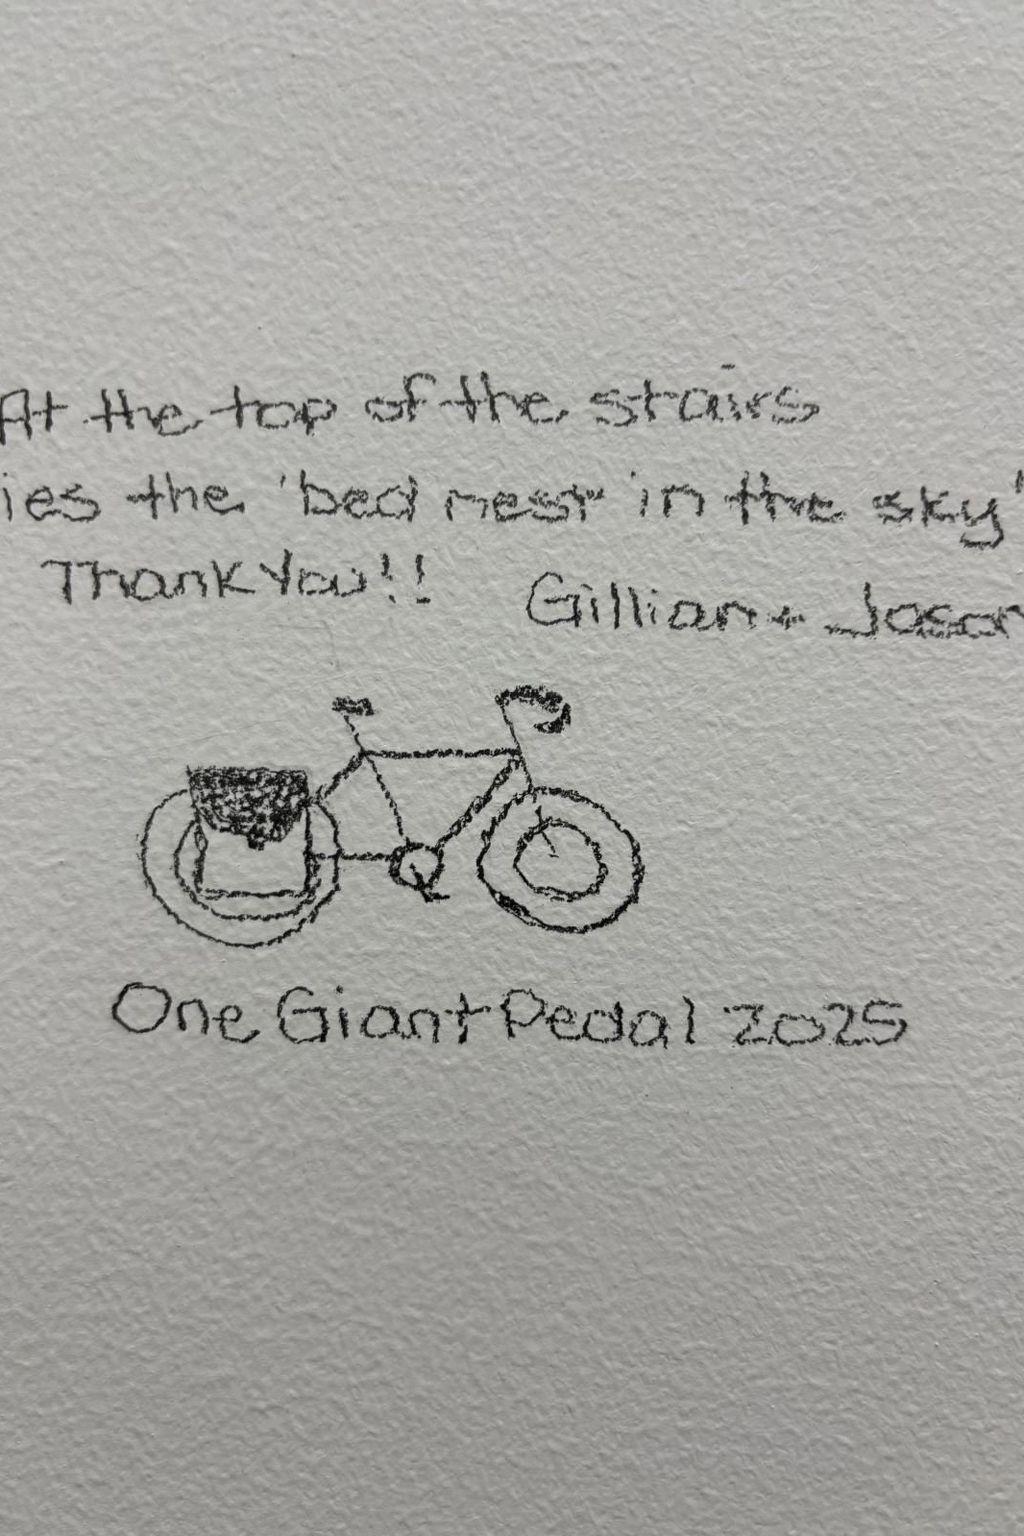 At the top of the stairs
ies the 'bed nest' in the sky'
Thank You!!
Gillian + Jason
One Giant Pedal 2025